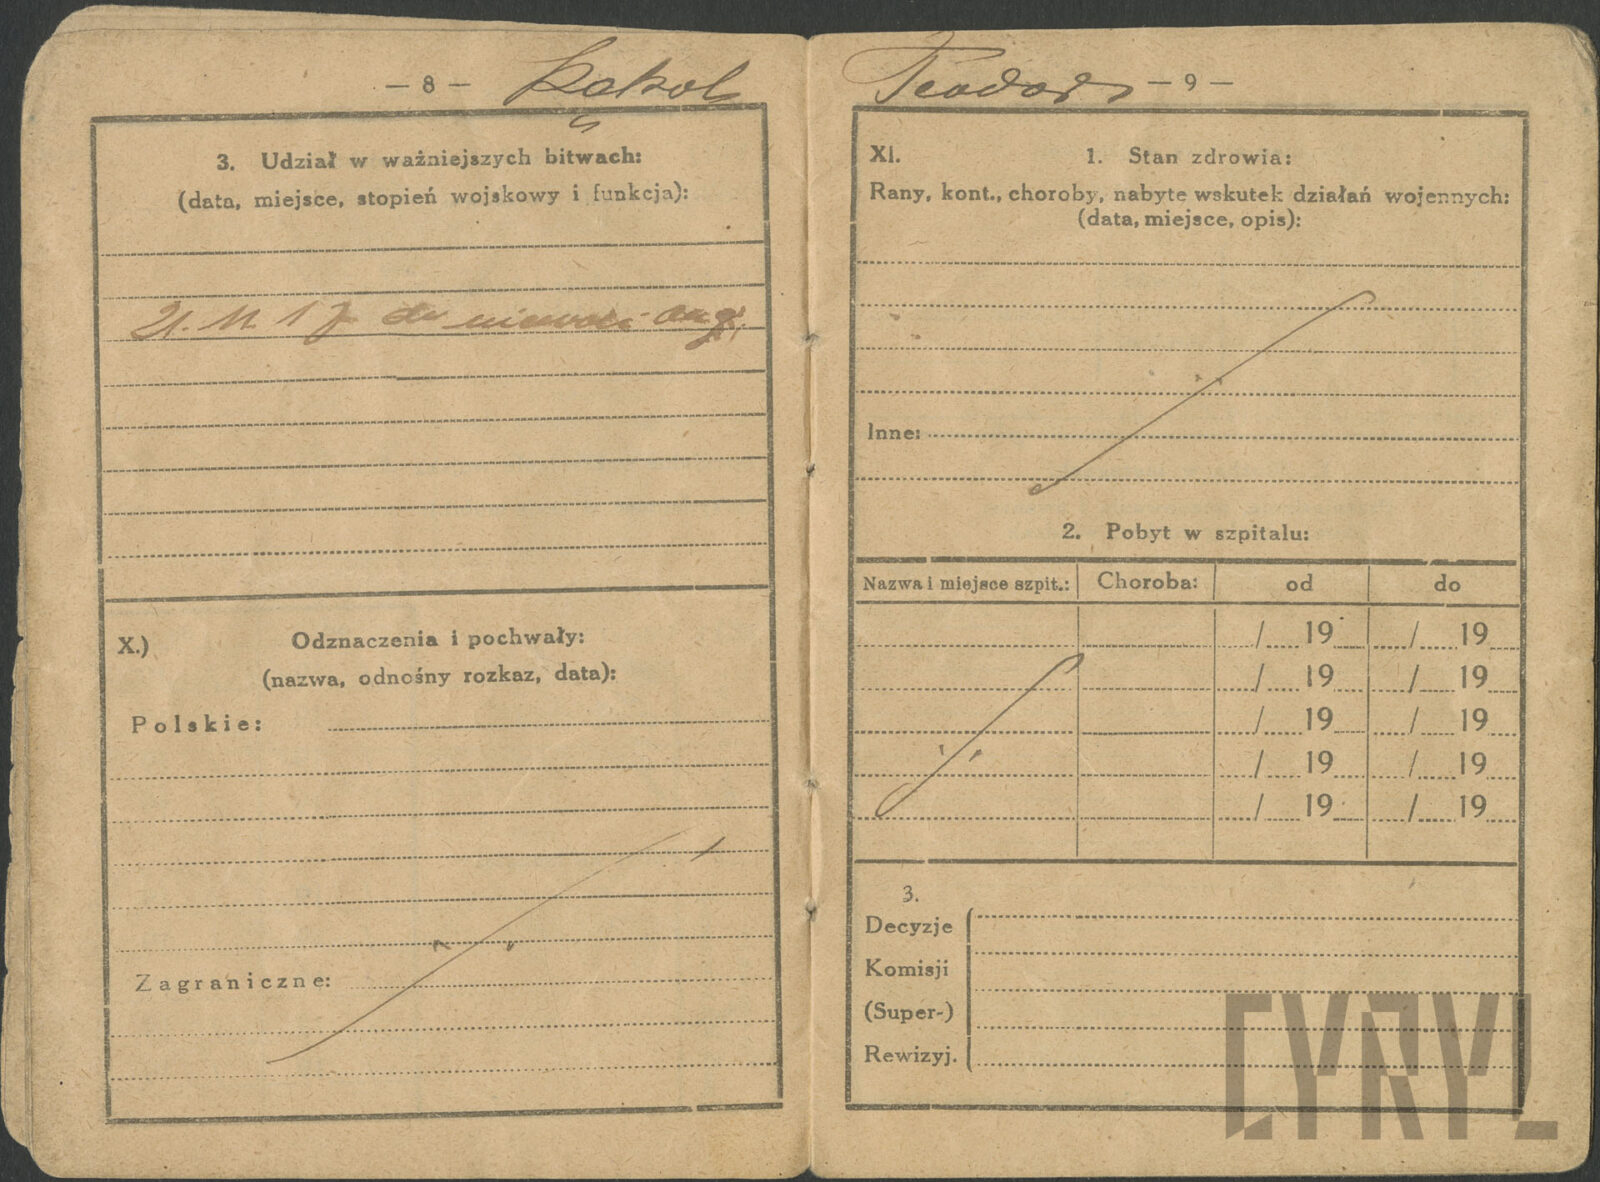 — 8 — Kąkol
3. Udział w ważniejszych bitwach:
(data, miejsce, stopień wojskowy i funkcja):
21. 11. 17 do niewoli ang.
X.) Odznaczenia i pochwały:
(nazwa, odnośny rozkaz, data):
Polskie:
Zagraniczne:
Teodor — 9 —
XI. 1. Stan zdrowia:
Rany, kont., choroby, nabyte wskutek działań wojennych:
(data, miejsce, opis):
Inne:
2. Pobyt w szpitalu:
Nazwa i miejsce szpit.: Choroba: od do
/ 19 / 19
/ 19 / 19
/ 19 / 19
/ 19 / 19
/ 19 / 19
3.
Decyzje
Komisji
(Super-)
Rewizyj.
CYRYL